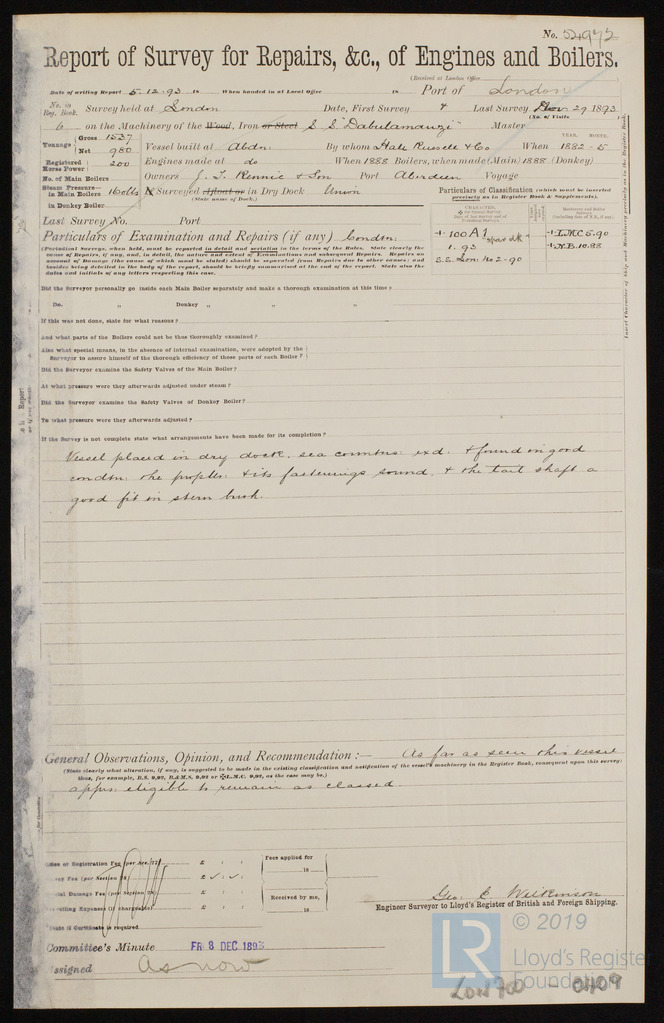 No. 52972
Report of Survey for Repairs, &c., of Engines and Boilers.
(Received at London Office
Date of writing Report 5.12.93 18 When handed in at Local Office 18 Port of London
No. in Reg. Book. Survey held at London Date, First Survey & Last Survey Nov 29 1893
(No. of Visits
6 on the Machinery of the Wood, Iron or Steel S.S. "Dabulamanzi" Master
Tonnage Gross 1537 Net 980
Vessel built at Abdn. By whom Hall Russell & Co When 1882-5
YEAR. MONTH.
Registered Horse Power 200
Engines made at do When 1888 Boilers, when made (Main) 1888 (Donkey)
No. of Main Boilers
Owners J. T. Rennie & Son Port Aberdeen Voyage
Steam Pressure in Main Boilers 160 lbs
If Surveyed Afloat or in Dry Dock Union
(State name of Dock.)
in Donkey Boiler
Particulars of Classification (which must be inserted precisely as in Register Book & Supplements).
+ 100A1 spar dk
1.93
S.S. Lon. No 2-90
+ L.M.C 5.90
+ N.B. 10.88
Last Survey No. Port
Particulars of Examination and Repairs (if any) Condtn:
(Periodical Surveys, when held, must be reported in detail and seriatim in the terms of the Rules. State clearly the
name of Repairs, if any, and, in detail, the nature and extent of Examinations and subsequent Repairs. Repairs on
account of Damage (the cause of which must be stated) should be separated from Repairs due to other causes; and
besides being detailed in the body of the report, should be briefly summarised at the end of the report. State also the
dates and initials of any letters respecting this case.
Did the Surveyor personally go inside each Main Boiler separately and make a thorough examination at this time?
Do. " Donkey " " "
If this was not done, state for what reasons?
And what parts of the Boilers could not be thus thoroughly examined?
Also what special means, in the absence of internal examination, were adopted by the
Surveyor to assure himself of the thorough efficiency of those parts of each Boiler?
Did the Surveyor examine the Safety Valves of the Main Boiler?
At what pressure were they afterwards adjusted under steam?
Did the Surveyor examine the Safety Valves of Donkey Boiler?
To what pressure were they afterwards adjusted?
If the Survey is not complete state what arrangements have been made for its completion?
Vessel placed in dry dock, sea conntns: exd: & found in good
condtn: the proplr: & its fastenings sound, & the tail shaft a
good fit in stern bush.
General Observations, Opinion, and Recommendation :— As far as seen this vessel
(State clearly what alteration, if any, is suggested to be made in the existing classification and notification of the vessel's machinery in the Register Book, consequent upon this survey;
thus, for example, B.S. 9,92, B.&M.S. 9,92 or L.M.C. 9,92, as the case may be.)
apprs: eligible to remain as classed.
Fee (per Section 28)
Damage Fee (per Section 28)
Expenses (if chargeable)
Certificate is required
Fees applied for
18
Received by me,
18
Geo. C. Wilkinson
Engineer Surveyor to Lloyd's Register of British and Foreign Shipping.
Committee's Minute FRI 8 DEC 1893
Assigned As now
LR © 2019
Lloyd's Register
Foundation
LON 700 - 0409